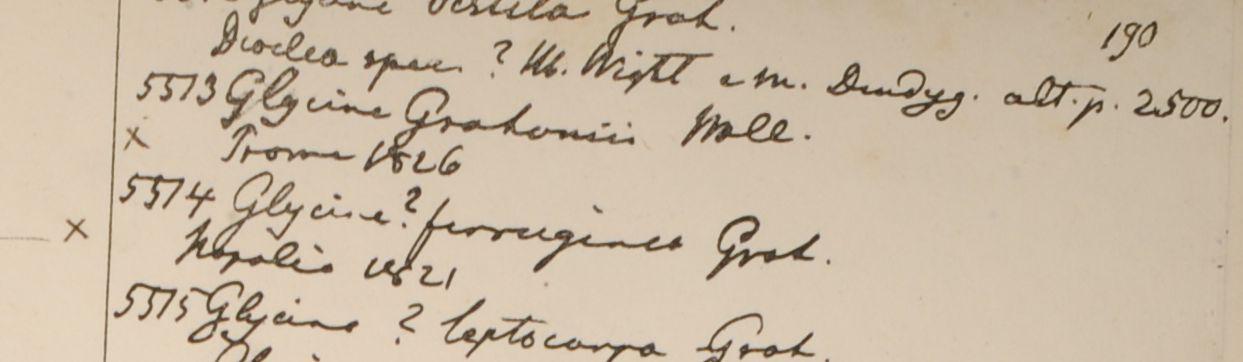 Glycine vestita Grah.
190
Dioclea spec. ? Hb. Wight e m. Dindyg. alt. p. 2500.
5513 Glycine Grahamii Wall.
x Prome 1826
5514 Glycine? ferruginea Grah.
x Napalia 1821
5515 Glycine ? leptocarpa Grah.